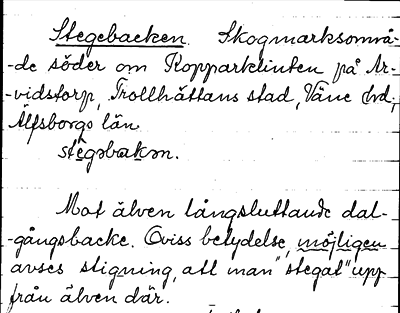 Stegebacken. Skogmarksområ-
-de söder om Kopparklinten på Ar-
-vidstorp, Trollhättans stad, Väne hd,
Älfsborgs län
stegəbakən.
Mot älven långsluttande dal-
-gångsbacke. Oviss betydelse, möjligen
avses stigning, att man "stegat" upp
från älven där.